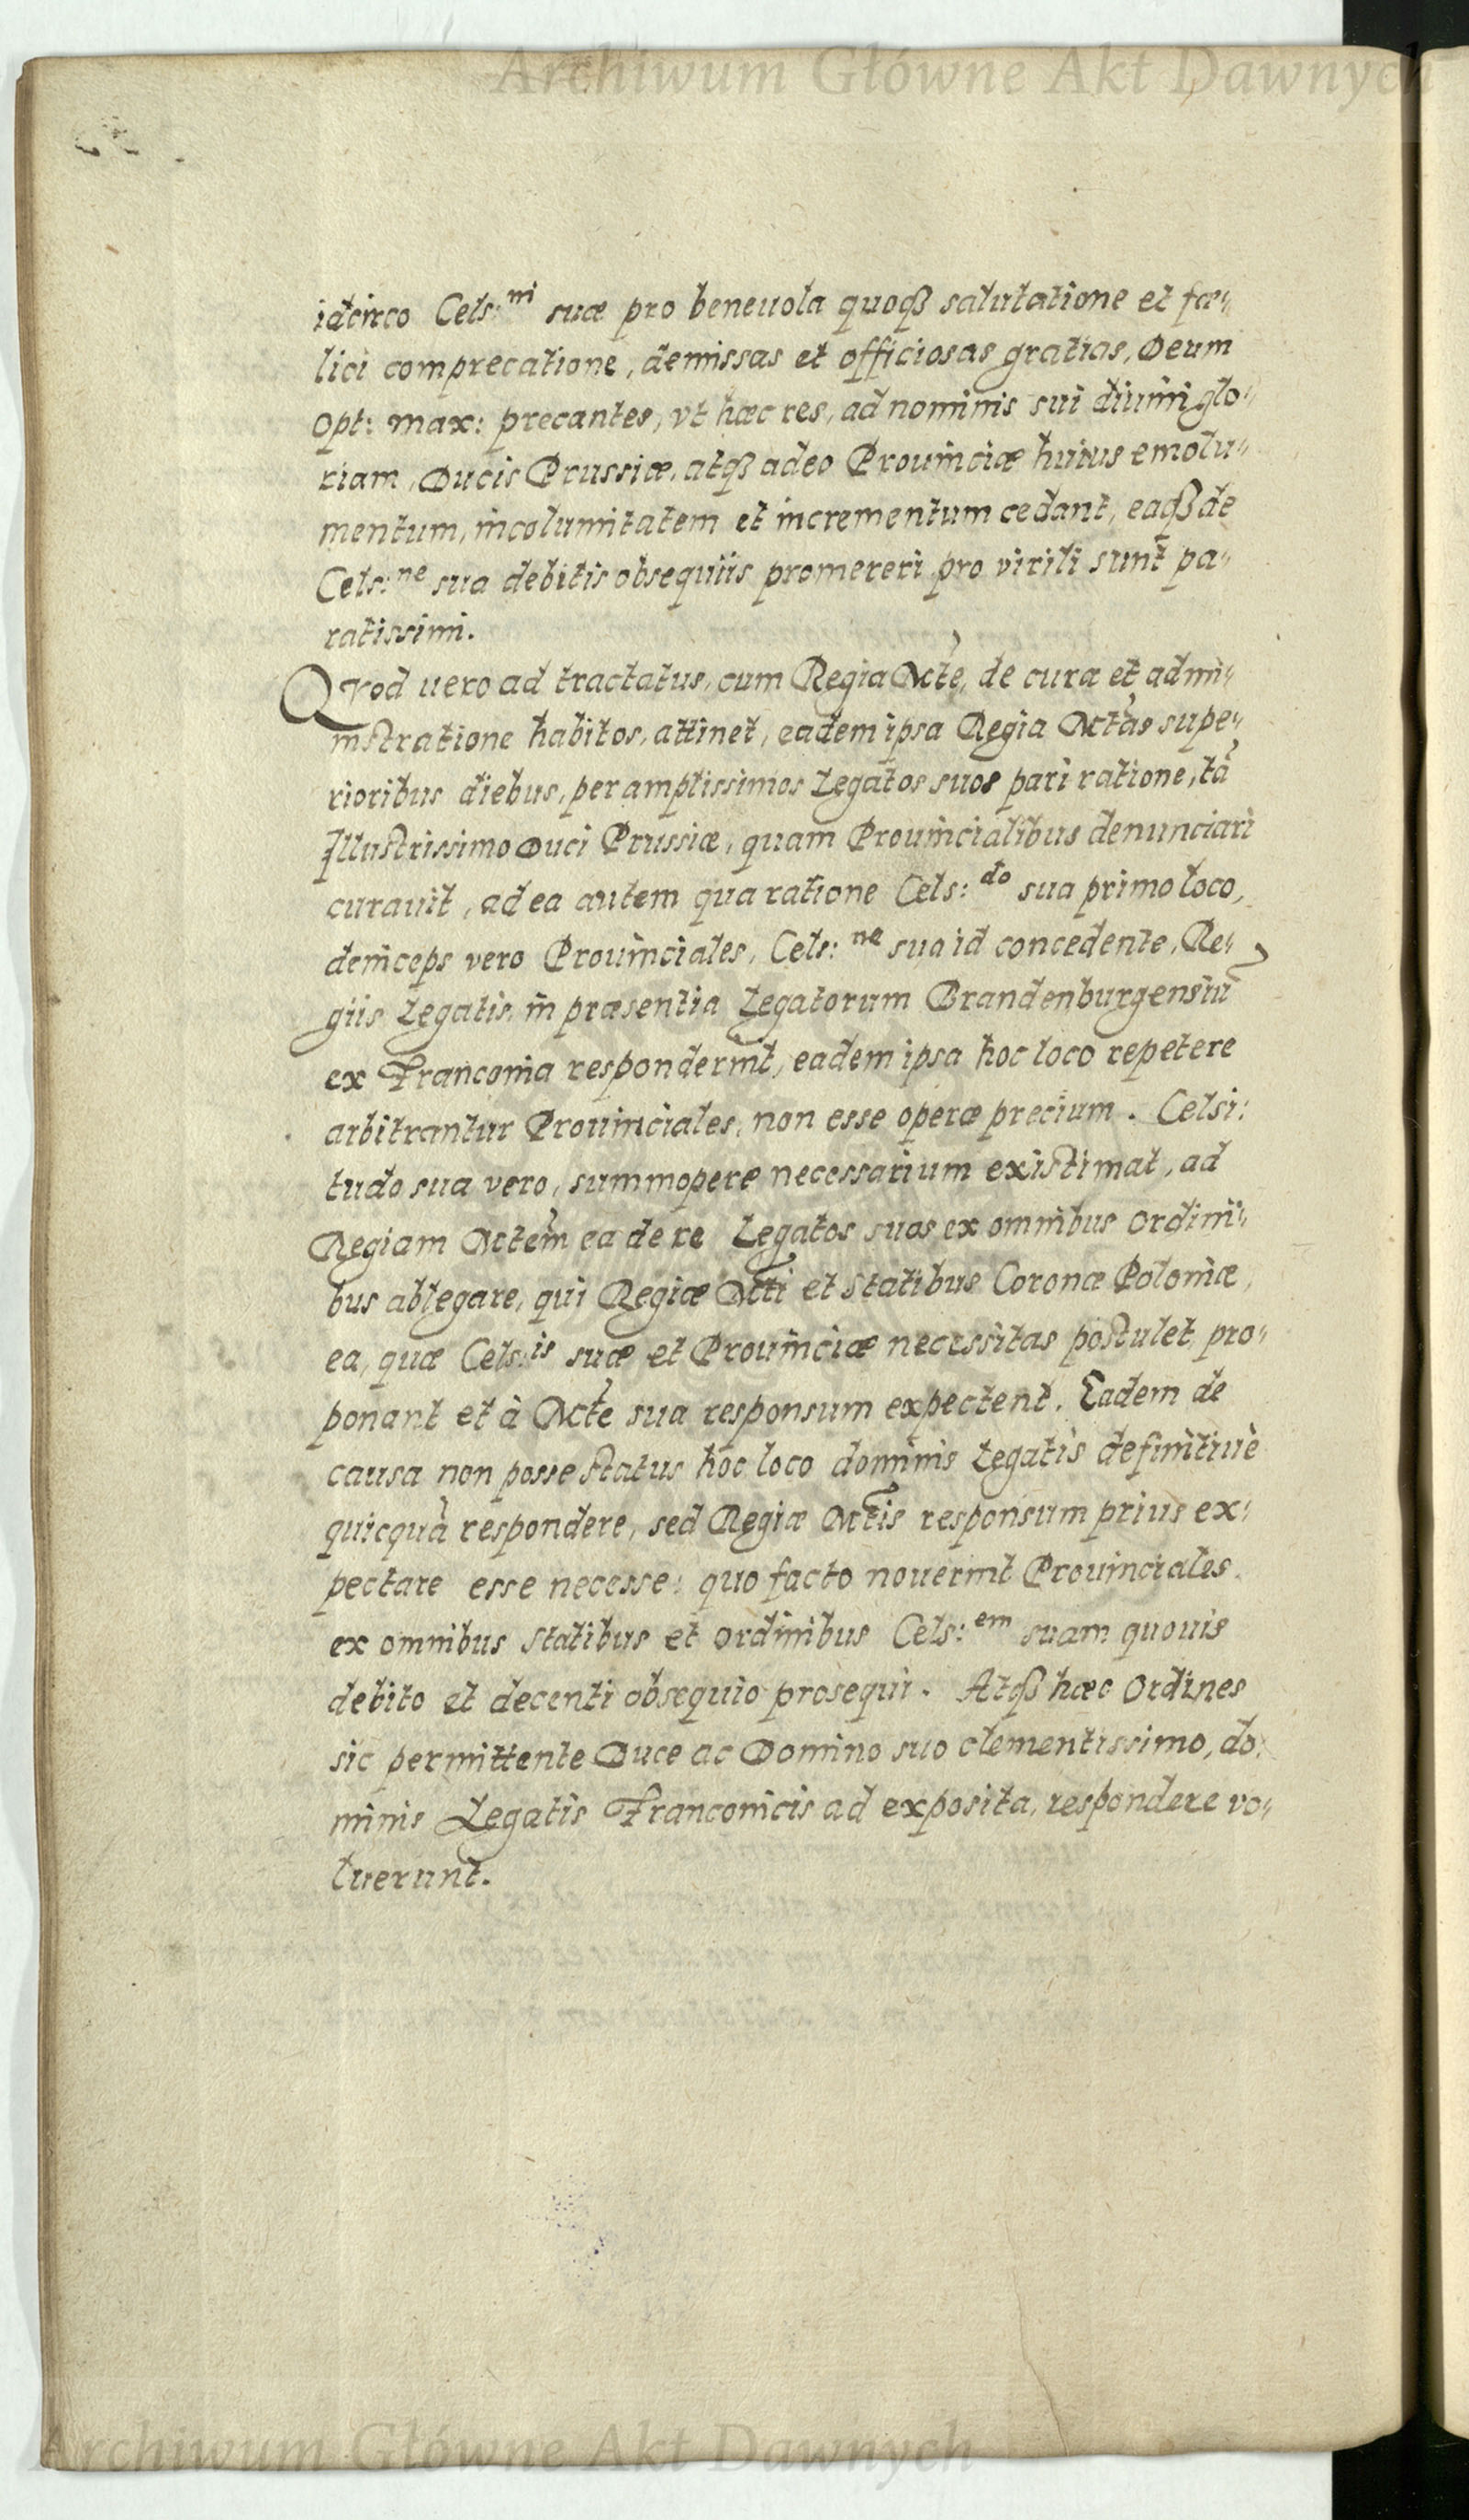 Archiwum Główne Akt Dawnych
idcirco Cels:ni suæ pro beneuola quoqß salutatione et fœ„
lici comprecatione, demissas et officiosas gratias, Deum
Opt: Max: precantes, vt hæc res, ad nominis sui diuini glo„
riam, Ducis Prussiæ, atqß adeo Prouinciæ huius emolu„
mentum, incolumitatem et incrementum cedant, eaqß de
Cels:ne sua debitis obsequiis promereri pro virili sunt pa„
ratissimi.
Qvod uero ad tractatus, cum Regia Mte, de cura et admi„
nistratione habitos, attinet, eadem ipsa Regia Mtas supe„
rioribus diebus, per amplissimos Legatos suos pari ratione, tã
Illustrissimo Duci Prussiæ, quam Prouincialibus denunciari
curauit, ad ea autem qua ratione Cels:do sua primo loco,
deinceps vero Prouinciales, Cels:ne sua id concedente, Re„
giis Legatis, in præsentia Legatorum Brandenburgensiũ
ex Franconia responderint, eadem ipsa hoc loco repetere
arbitrantur Prouinciales, non esse operæ precium. Celsi:
tudo sua vero, summopere necessarium existimat, ad
Regiam Mtem ea de re Legatos suos ex omnibus Ordini„
bus ablegare, qui Regiæ Mti et Statibus Coronæ Poloniæ,
ea, quæ Cels:is suæ et Prouinciæ necessitas postulet, pro„
ponant et à Mte sua responsum expectent. Eadem de
causa non posse status hoc loco dominis Legatis definitiuè
quicquã respondere, sed Regiæ Mtis responsum prius ex„
pectare esse necesse: quo facto nouerint Prouinciales
ex omnibus Statibus et Ordinibus Cels:em suam quouis
debito et decenti obsequio prosequi. Atqß hæc Ordines
sic permittente Duce ac Domino suo clementissimo, do„
minis Legatis Franconicis ad exposita, respondere vo„
luerunt.
Archiwum Główne Akt Dawnych